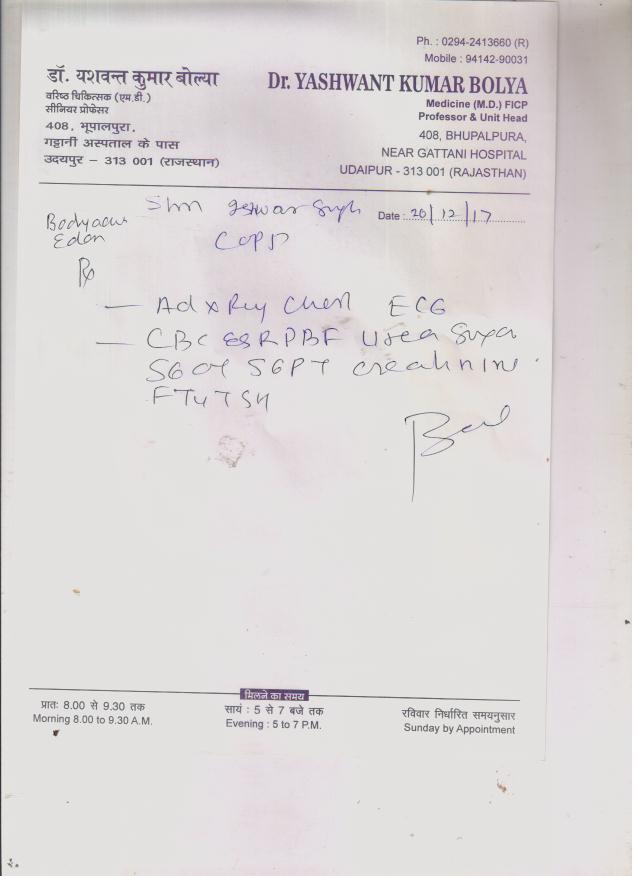 Ph. : 0294-2413660 (R)
Mobile : 94142-90031
डॉ. यशवन्त कुमार बोल्या
वरिष्ठ चिकित्सक (एम.डी.)
सीनियर प्रोफेसर
408, भूपालपुरा,
गट्टानी अस्पताल के पास
उदयपुर – 313 001 (राजस्थान)
Dr. YASHWANT KUMAR BOLYA
Medicine (M.D.) FICP
Professor & Unit Head
408, BHUPALPURA,
NEAR GATTANI HOSPITAL
UDAIPUR - 313 001 (RAJASTHAN)
Date : 20/12/17
COPD
Rx
— Ad x Ray Chest ECG
— CBC ESR PBF Urea Sugar
SGOT SGPT creatinine
FT4 TSH
मिलने का समय
प्रातः 8.00 से 9.30 तक
Morning 8.00 to 9.30 A.M.
सायं : 5 से 7 बजे तक
Evening : 5 to 7 P.M.
रविवार निर्धारित समयनुसार
Sunday by Appointment